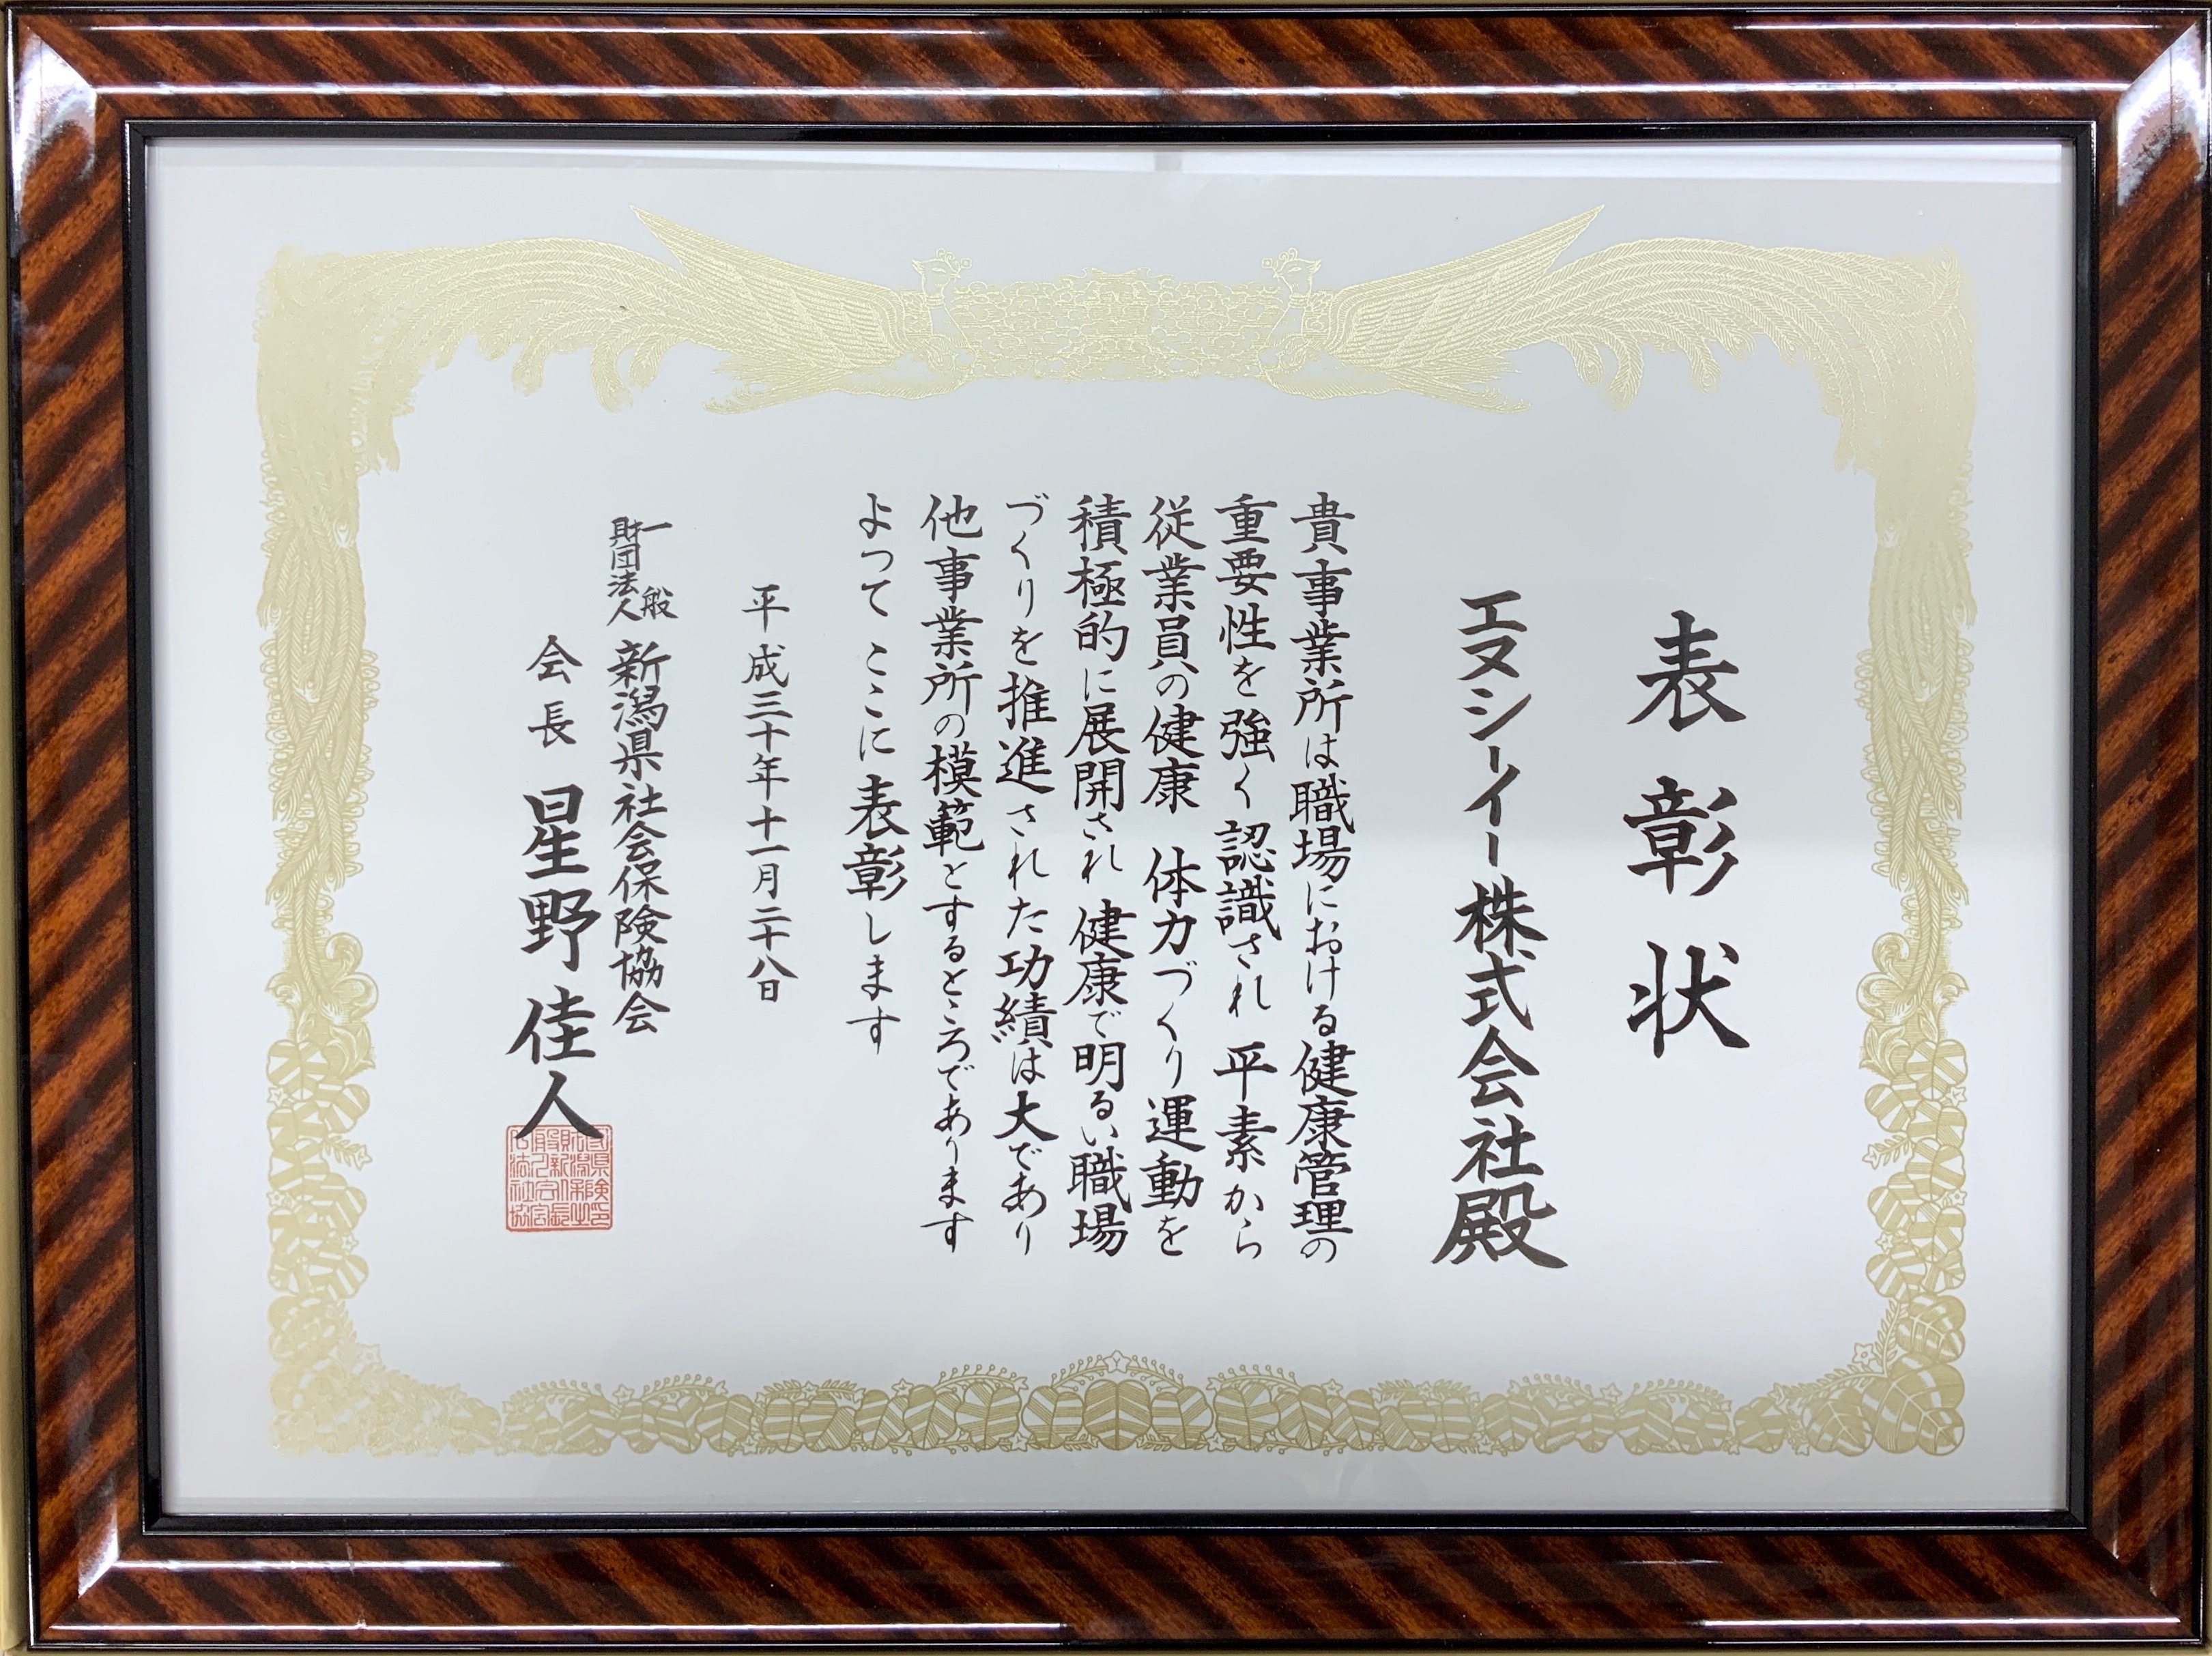 表彰状
エヌシーイー株式会社殿
貴事業所は職場における健康管理の
重要性を強く認識され 平素から
従業員の健康 体力づくり運動を
積極的に展開され 健康で明るい職場
づくりを推進された功績は大であり
他事業所の模範とするところであります
よって ここに表彰します
平成三十年十一月二十八日
一般財団法人 新潟県社会保険協会
会長 星野佳人